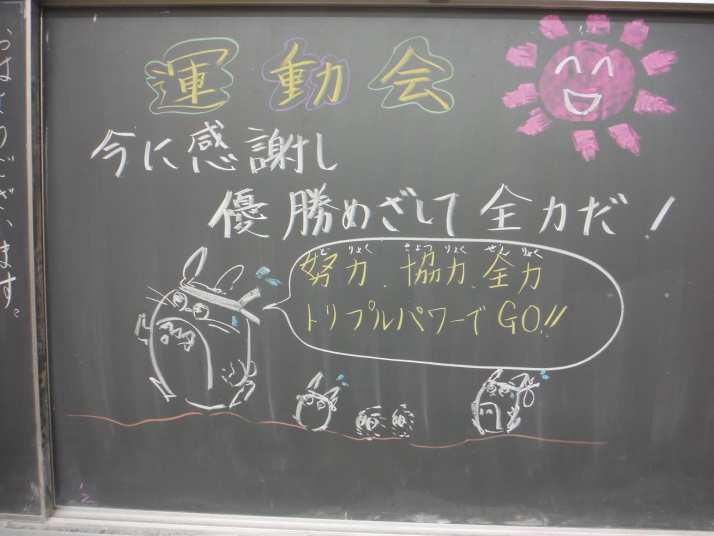 おはようございます。
運動会
今に感謝し
優勝めざして全力だ!
どりょく きょうりょく ぜんりょく
努力、協力、全力
トリプルパワーでGO!!